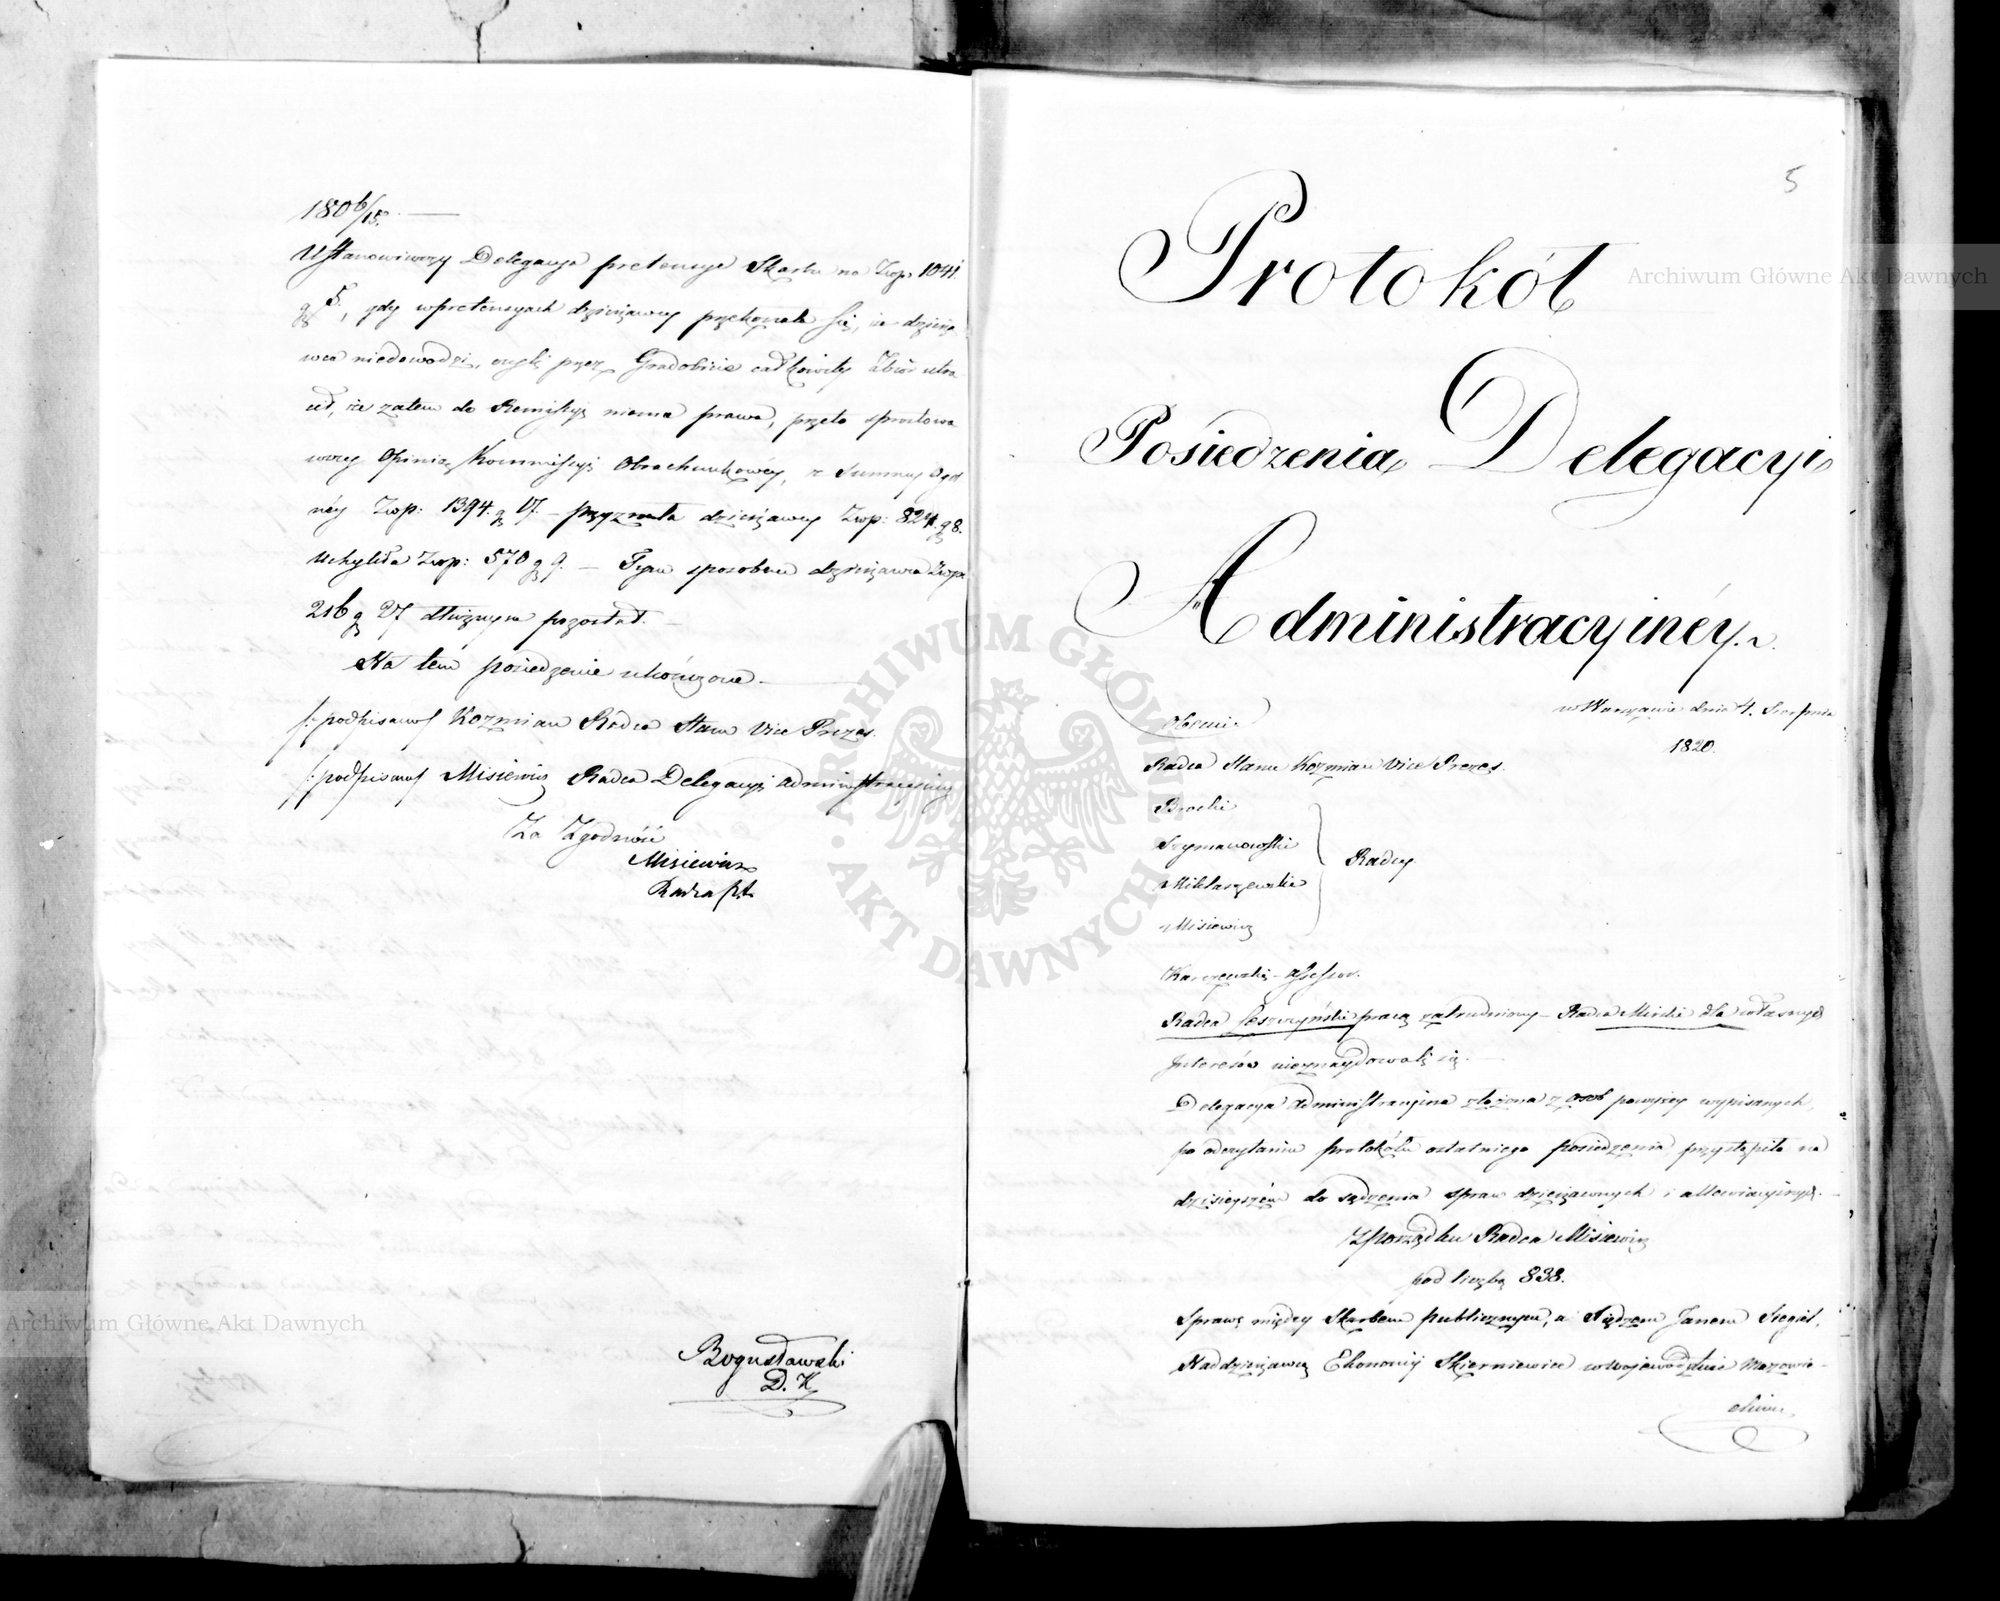 180 6/15. —
Ustanowiwszy Delegacya pretensye Skarbu na Złp. 1041.
g 5., gdy w pretensyach dzierżawcy przekonała się, że dzierża
wca niedowodzi, iż przez Gradobicie całkowity Zbiór utra
cił, że zatem do Remissyi niema prawa, przeto sprostowa
wszy Opinią Kommissyi Obrachunkowéy, z Summy Ogól
néy Złp: 1394. g 17. — przyznała dzierżawcy Złp: 824. g 8.
Uchyliła Złp: 570 g 9. — Tym sposobem dzierżawca Złp.
216 g 27 dłużnym pozostał. —
Na tém posiedzenie ukończone —
/: podpisano/ Kozmian Radca Stanu Vice Prezes.
/: podpisano/ Misiewicz Radca Delegacyi Administracyinéy
Za Zgodność
Misiewicz
Radca
Bogusławski
D. K
5
Protokół
Posiedzenia Delegacyi
Administracyinéy.
w Warszawie dnia 4. Sierpnia
1820.
Obecni.
Radca Stanu Kozmian Vice Prezes.
Brocki
Szymanowski
Miklaszewski
Misiewicz
Radcy
Karczewski — Assessor.
Radca Leszczyński pracą zatrudniony — Radca Mirski dla własnych
Interesów nieznaydowali się. —
Delegacya Administracyina złożona z osób powyżey wypisanych,
po odczytaniu protokółu ostatniego posiedzenia przystąpiła na
dzisieyszém do sądzenia spraw dzierżawnych i allewiacyinych. —
Z porządku Radca Misiewicz
pod liczbą 838.
Sprawę między Skarbem publicznym, a Xiędzem Janem Siegiel,
Naddzierżawcą Ekonomij Skierniewice w Województwie Mazowie-
ckim
Archiwum Główne Akt Dawnych
Archiwum Główne Akt Dawnych
ARCHIWUM GŁÓWNE · AKT DAWNYCH ·